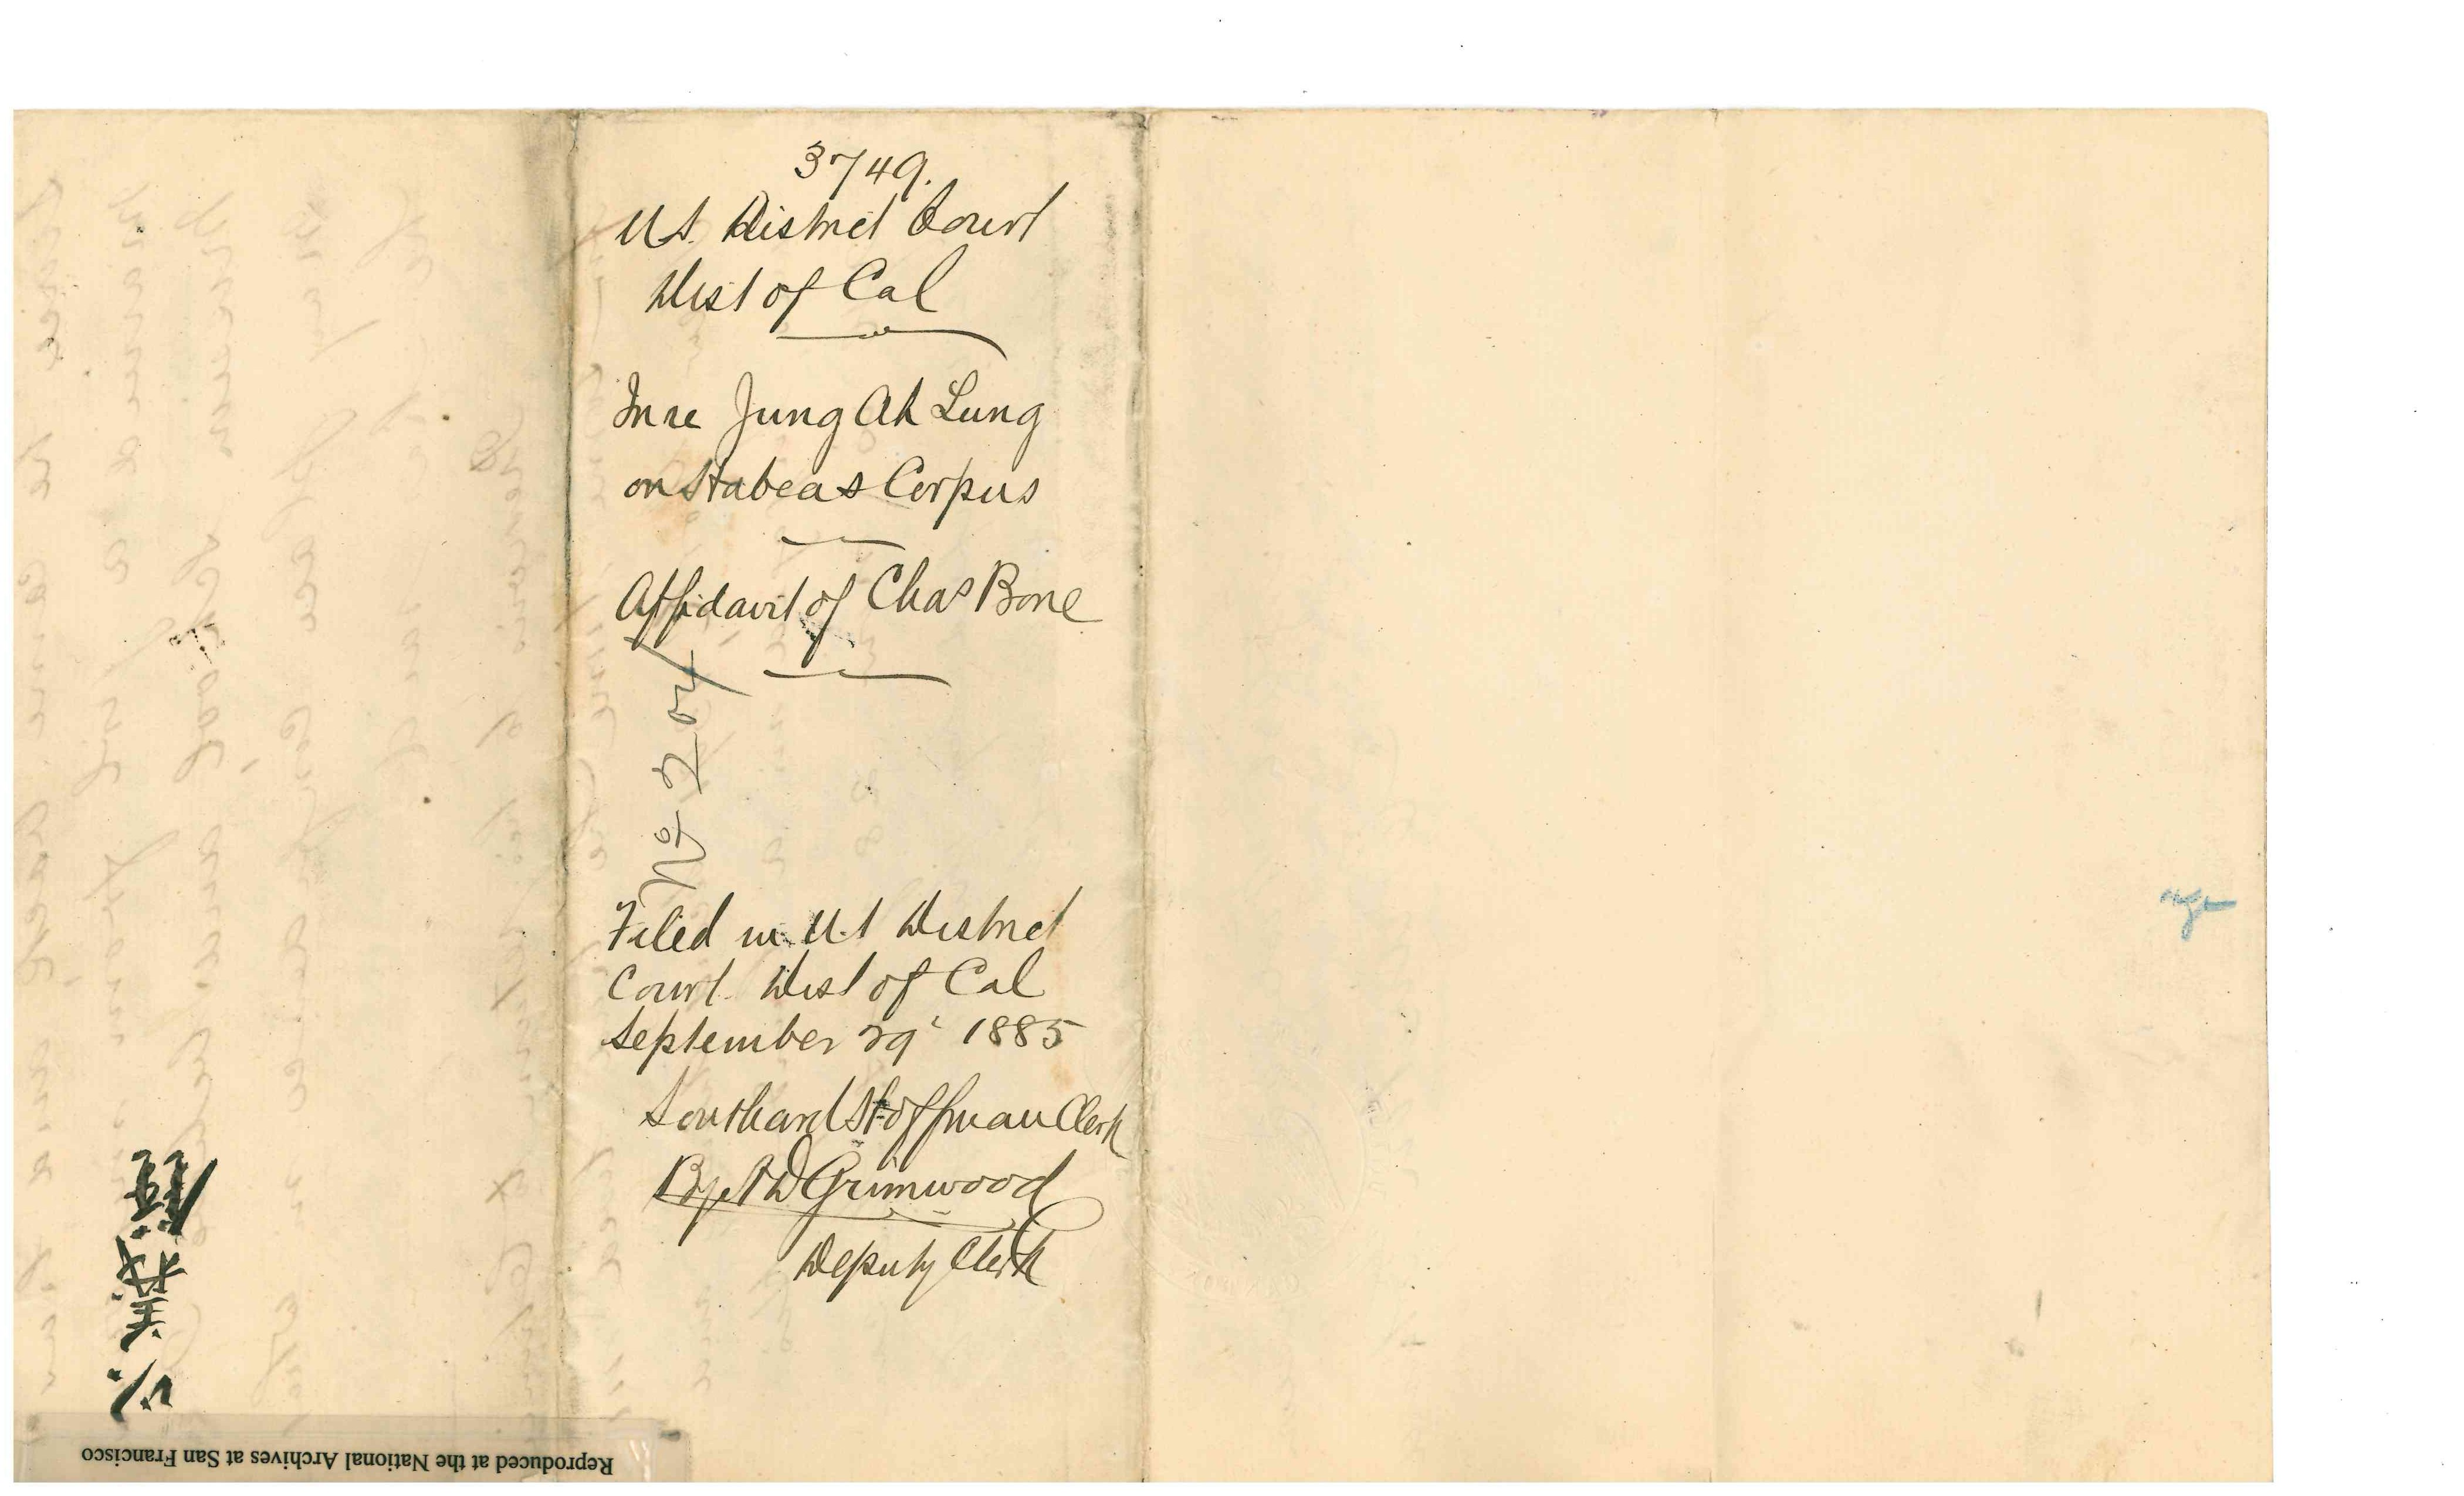 3749.
U.S. District Court
Dist of Cal
In re Jung Ah Lung
on Habeas Corpus
Affidavit of Chas Bone
No
Filed in U.S District
Court. Dist of Cal
September 29' 1885
Southard Hoffman Clerk
By Grimwood
Deputy Clerk
Reproduced at the National Archives at San Francisco